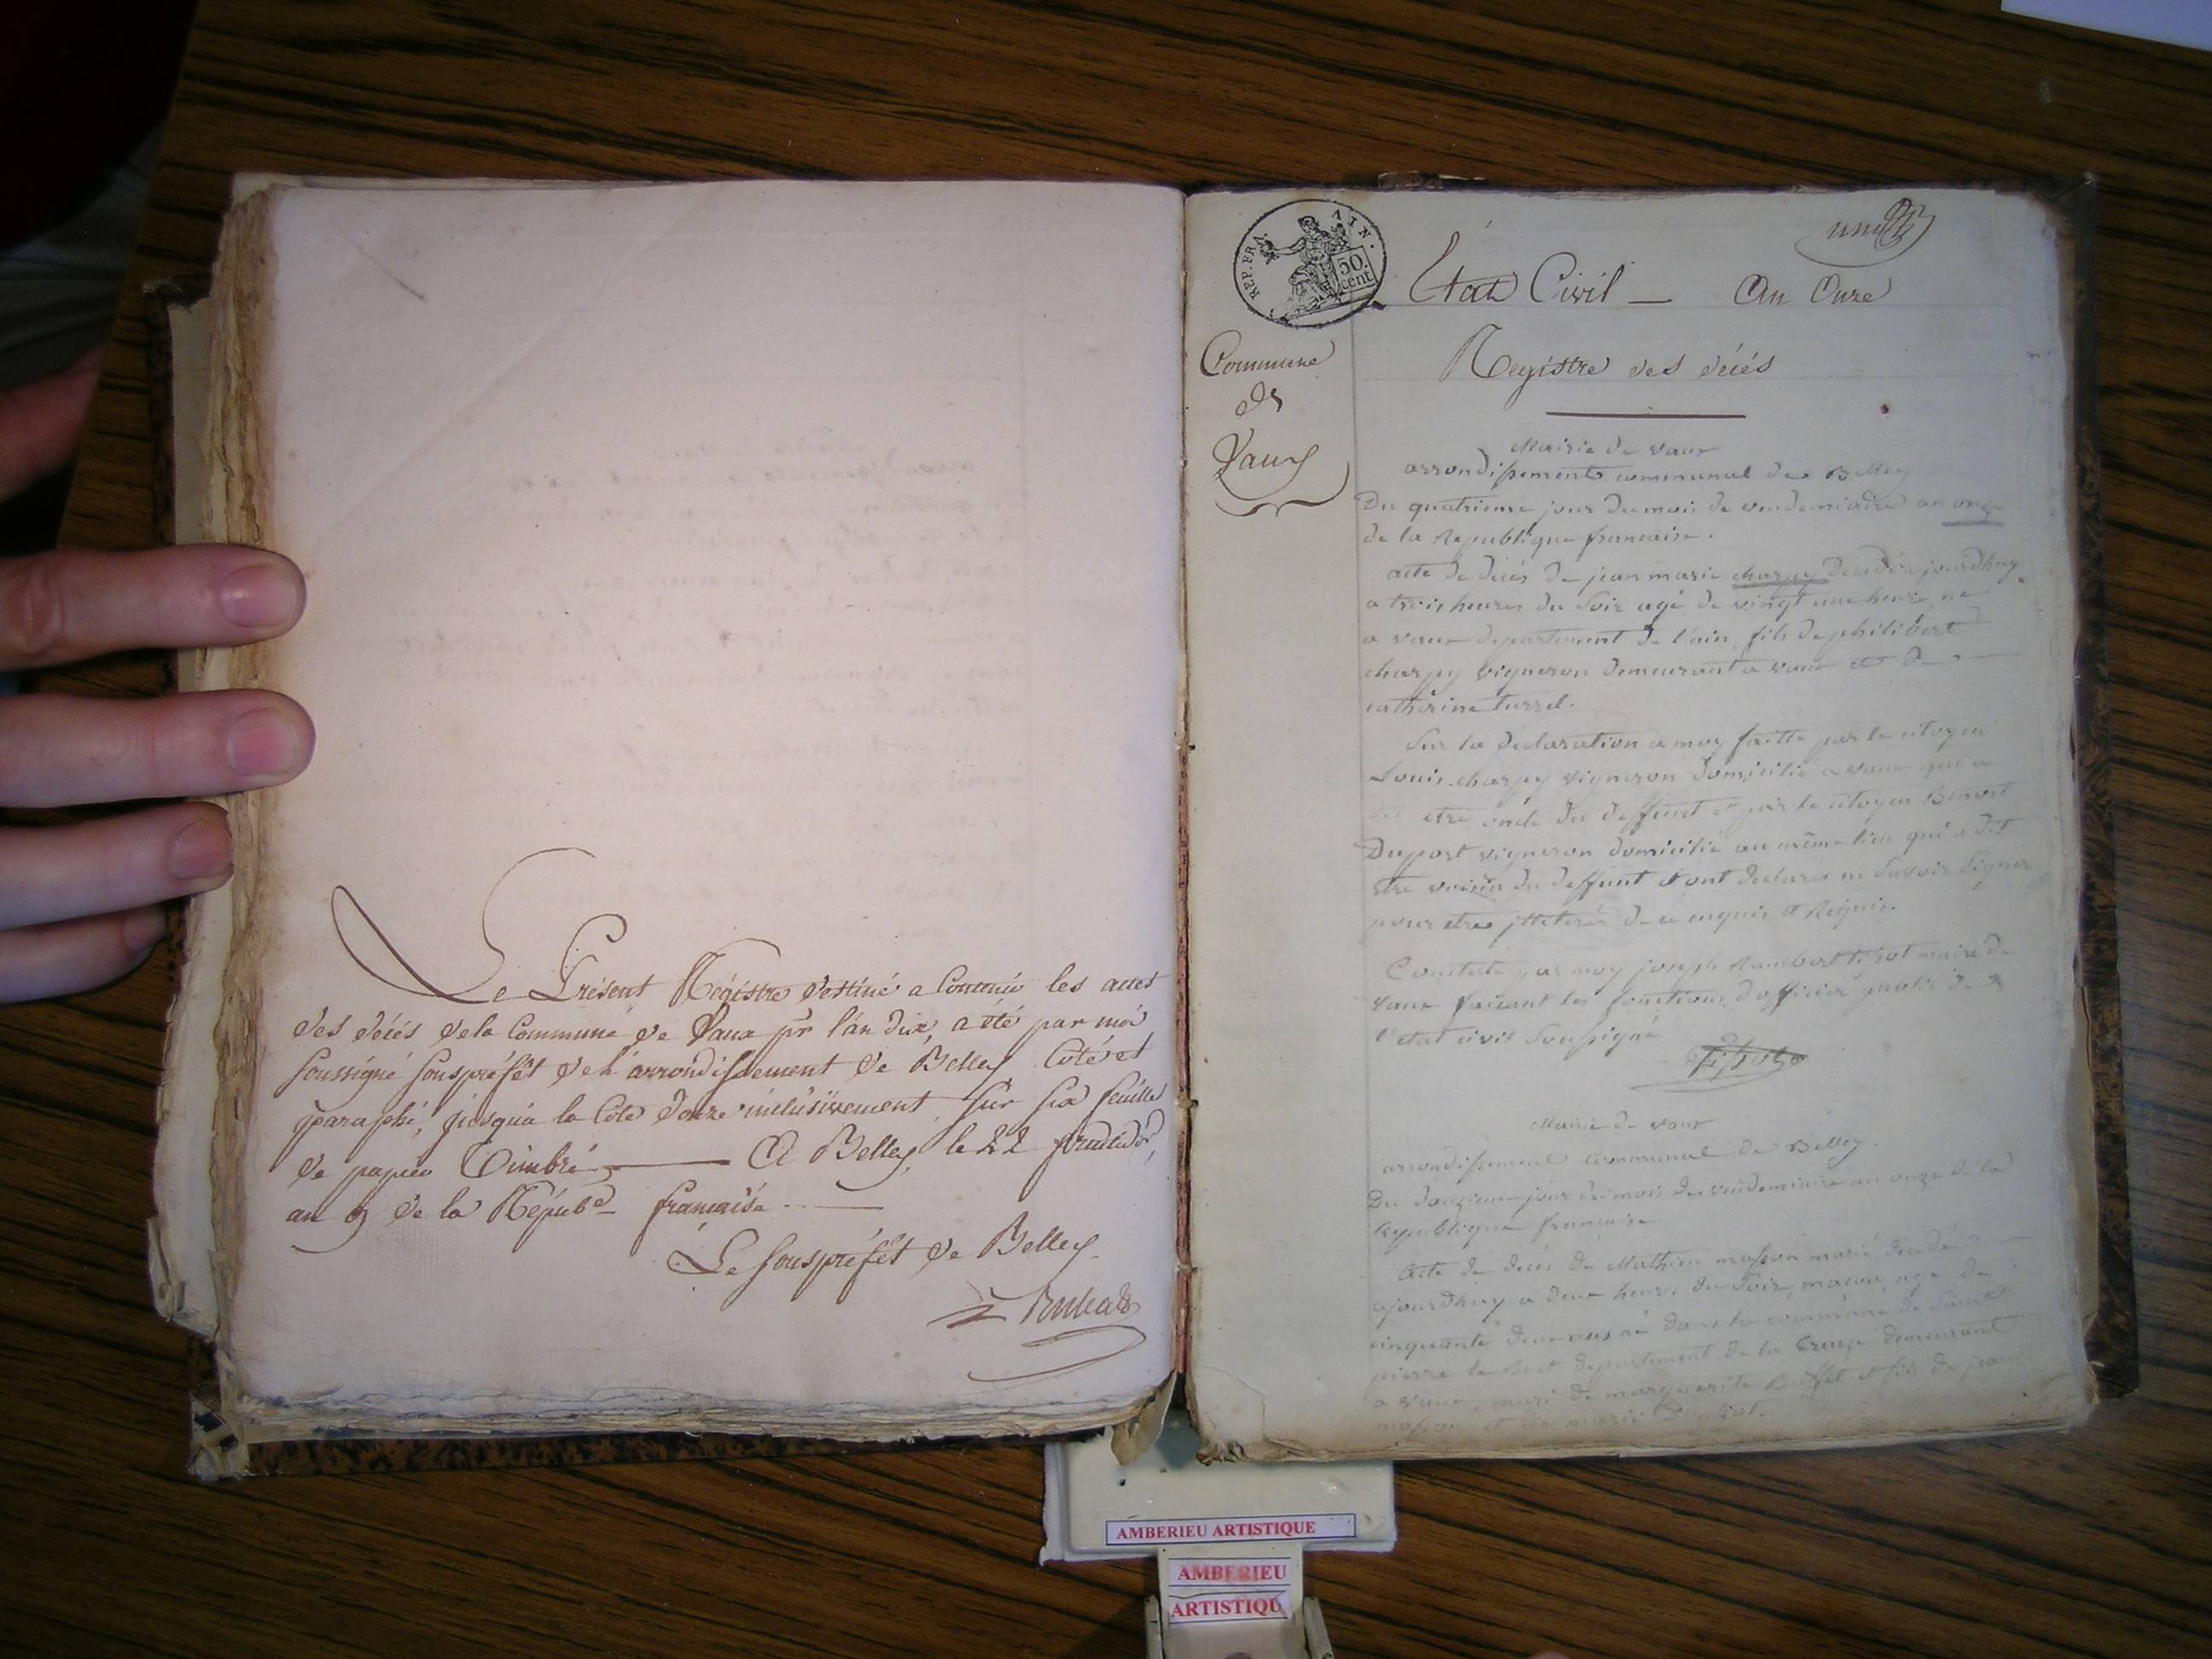 Le Présent Régistre destiné a Contenir les actes
des décés dela Commune de Vaux pr l'an dix, a été par moi
soussigné souspréfêt de l'arrondissement de Belley Coté et
paraphé, jusqu'a la Cote douze inclusivement, sur six feuilles
de papier Timbré, A Belley, le 22 fructidor,
an 9 de la Répube française.
Le souspréfêt de Belley
REP. FRA. AIN.
50. cent
État Civil — An Onze
Registre des décés
Commune
de
Vaux
Mairie de vaux
arrondissement communal de Belley
Du quatrieme jour du mois de vendemiaire an onze
de la Republique francaise.
acte de decés de jean marie charpy decedé ajourdhuy
a trois heures du soir agé de vingt une heure, né
a vaux departement de l'ain, fils de philibert
charpy vigneron demeurant a vaux et de
catherine turrel.
Sur la declaration a moy faitte par le citoyen
Louis charpy vigneron domicilié a vaux qui a
dit etre oncle du deffunt et par le citoyen Benoit
Duport vigneron domicilié au même lieu qui a dit
etre voisin du deffunt et ont declarés ne savoir signer
pour etres de ce enquis et Requis.
Constaté par moy joseph Rambert tissot maire de
vaux faisant les fonctions d'officier public de
l'etat civil soussigné
Tissot
Mairie de vaux
arrondissement communal de Belley.
Du douzieme jour du mois de vendemiaire an onze de la
Republique francaise
Acte de decés de Mathieu masson marié decedé
ajourdhuy a deux heures du soir, macon, agé de
cinquante deux ans né dans la commune de Saint
pierre le Bost departement de la Creuse demeurant
a vaux, mari de marguerite Buffet et fils de jean
masson et de marie
AMBERIEU ARTISTIQUE
AMBERIEU
ARTISTIQU